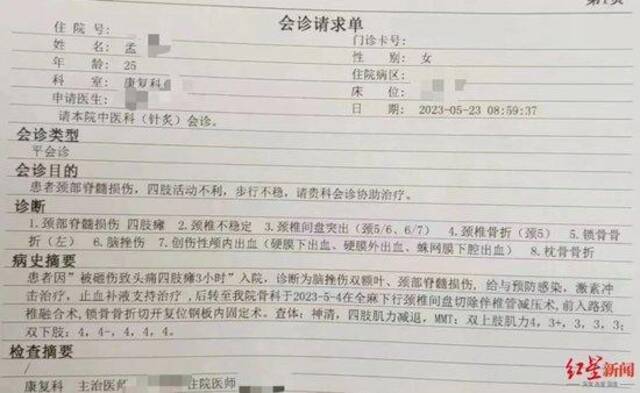 会诊请求单
住 院 号:
门诊卡号:
姓 名: 孟
性 别: 女
年 龄: 25
住院病区:
科 室: 康复科
床 位:
申请医生:
日 期: 2023-05-23 08:59:37
请本院中医科（针灸）会诊。
会诊类型
平会诊
会诊目的
患者颈部脊髓损伤，四肢活动不利，步行不稳，请贵科会诊协助治疗。
诊断
1.颈部脊髓损伤 四肢瘫 2.颈椎不稳定 3.颈椎间盘突出（颈5/6、6/7） 4.颈椎骨折（颈5） 5.锁骨骨
折（左） 6.脑挫伤 7.创伤性颅内出血（硬膜下出血、硬膜外出血、蛛网膜下腔出血） 8.枕骨骨折
病史摘要
患者因"被砸伤致头痛四肢瘫3小时"入院，诊断为脑挫伤双额叶、颈部脊髓损伤，给与预防感染，激素冲
击治疗，止血补液支持治疗，后转至我院骨科于2023-5-4在全麻下行颈椎间盘切除伴椎管减压术,前入路颈
椎融合术,锁骨骨折切开复位钢板内固定术。查体：神清，四肢肌力减退，MMT：双上肢肌力4, 3+, 3, 3, 3;
双下肢：4, 4-, 4, 4, 4。
检查摘要
/
康复科 主治医师 住院医师
红星新闻